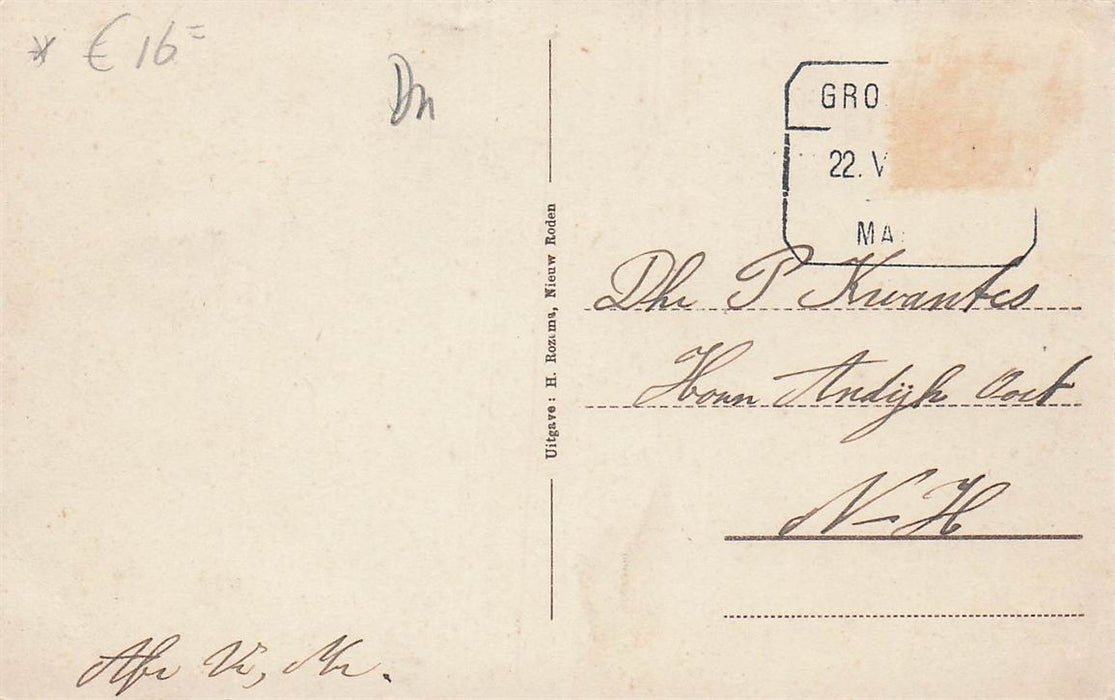 * € 16=
Dn
GRO
22. V
MA
Dhr P Kwantes
Hoan Andijk Oost
N-H
Uitgave: H. Rozema, Nieuw Roden
Afz